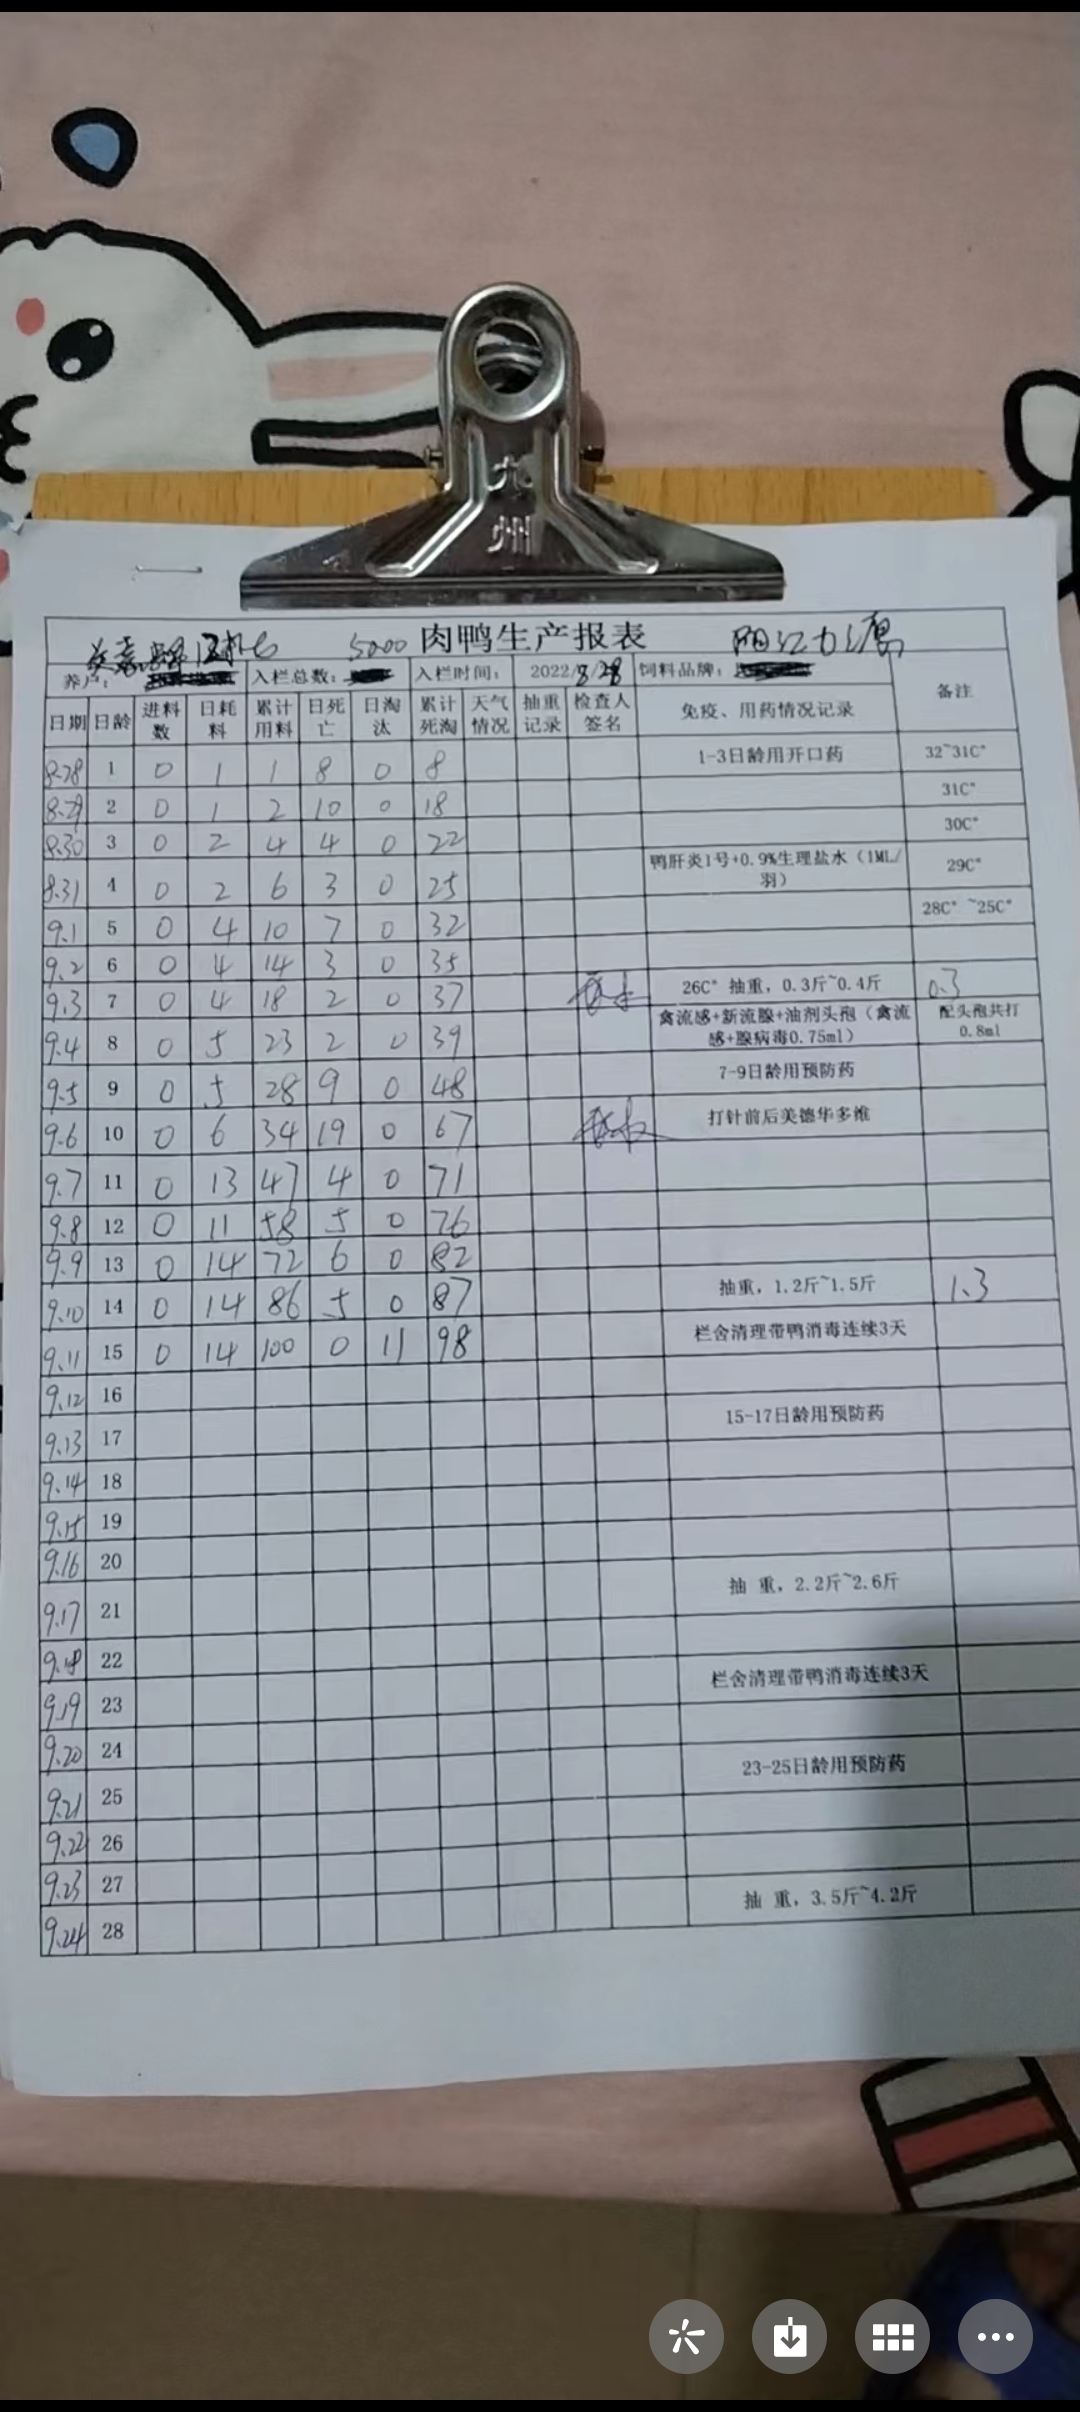 九
州
5000 肉鸭生产报表 阳江
养户: 入栏总数: 入栏时间: 2022/8/28 饲料品牌: 备注
日期 日龄 进料数 日耗料 累计用料 日死亡 日淘汰 累计死淘 天气情况 抽重记录 检查人签名 免疫、用药情况记录
8.28 1 0 1 1 8 0 8 1-3日龄用开口药 32~31C°
8.29 2 0 1 2 10 0 18 31C°
8.30 3 0 2 4 4 0 22 30C°
8.31 4 0 2 6 3 0 25 鸭肝炎1号+0.9%生理盐水(1ML/羽) 29C°
9.1 5 0 4 10 7 0 32 28C° ~25C°
9.2 6 0 4 14 3 0 35
9.3 7 0 4 18 2 0 37 26C° 抽重，0.3斤~0.4斤 0.3
9.4 8 0 5 23 2 0 39 禽流感+新流腺+油剂头孢(禽流感+腺病毒0.75ml) 配头孢共打0.8ml
9.5 9 0 5 28 9 0 48 7-9日龄用预防药
9.6 10 0 6 34 19 0 67 打针前后美德华多维
9.7 11 0 13 47 4 0 71
9.8 12 0 11 58 5 0 76
9.9 13 0 14 72 6 0 82
9.10 14 0 14 86 5 0 87 抽重，1.2斤~1.5斤 1.3
9.11 15 0 14 100 0 11 98 栏舍清理带鸭消毒连续3天
9.12 16
9.13 17 15-17日龄用预防药
9.14 18
9.15 19
9.16 20
9.17 21 抽 重，2.2斤~2.6斤
9.18 22
9.19 23 栏舍清理带鸭消毒连续3天
9.20 24
9.21 25 23-25日龄用预防药
9.22 26
9.23 27
9.24 28 抽 重，3.5斤~4.2斤